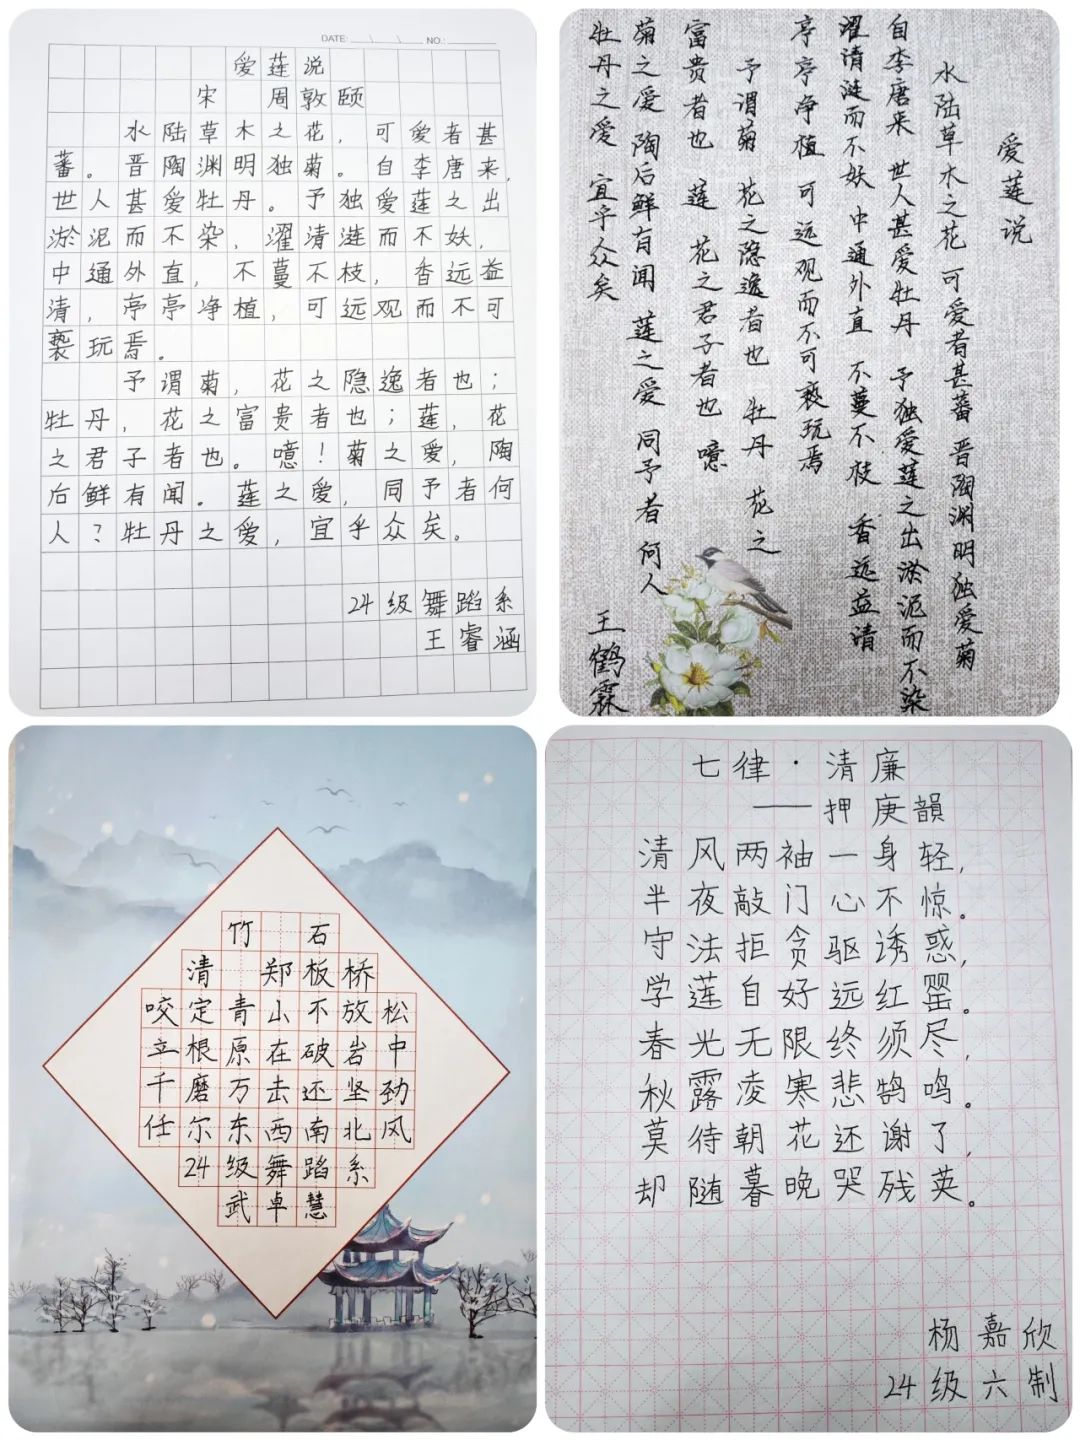 DATE: NO.:
爱莲说
宋 周敦颐
水陆草木之花，可爱者甚
蕃。晋陶渊明独菊。自李唐来，
世人甚爱牡丹。予独爱莲之出
淤泥而不染，濯清涟而不妖，
中通外直，不蔓不枝，香远益
清，亭亭净植，可远观而不可
亵玩焉。
予谓菊，花之隐逸者也；
牡丹，花之富贵者也；莲，花
之君子者也。噫！菊之爱，陶
后鲜有闻。莲之爱，同予者何
人？牡丹之爱，宜乎众矣。
24级舞蹈系
王睿涵
爱莲说
水陆草木之花 可爱者甚蕃 晋陶渊明独爱菊
自李唐来 世人甚爱牡丹 予独爱莲之出淤泥而不染
濯清涟而不妖 中通外直 不蔓不枝 香远益清
亭亭净植 可远观而不可亵玩焉
予谓菊 花之隐逸者也 牡丹 花之
富贵者也 莲 花之君子者也 噫
菊之爱 陶后鲜有闻 莲之爱 同予者何人
牡丹之爱 宜乎众矣
王鹤霖
竹石
清 郑板桥
咬定青山不放松
立根原在破岩中
千磨万击还坚劲
任尔东西南北风
24级舞蹈系
武卓慧
七律·清廉
——押庚韻
清风两袖一身轻，
半夜敲门心不惊。
守法拒贪驱诱惑，
学莲自好远红罂。
春光无限终须尽，
秋露凌寒悲鹄鸣。
莫待朝花还谢了，
却随暮晚哭残英。
杨嘉欣
24级六制